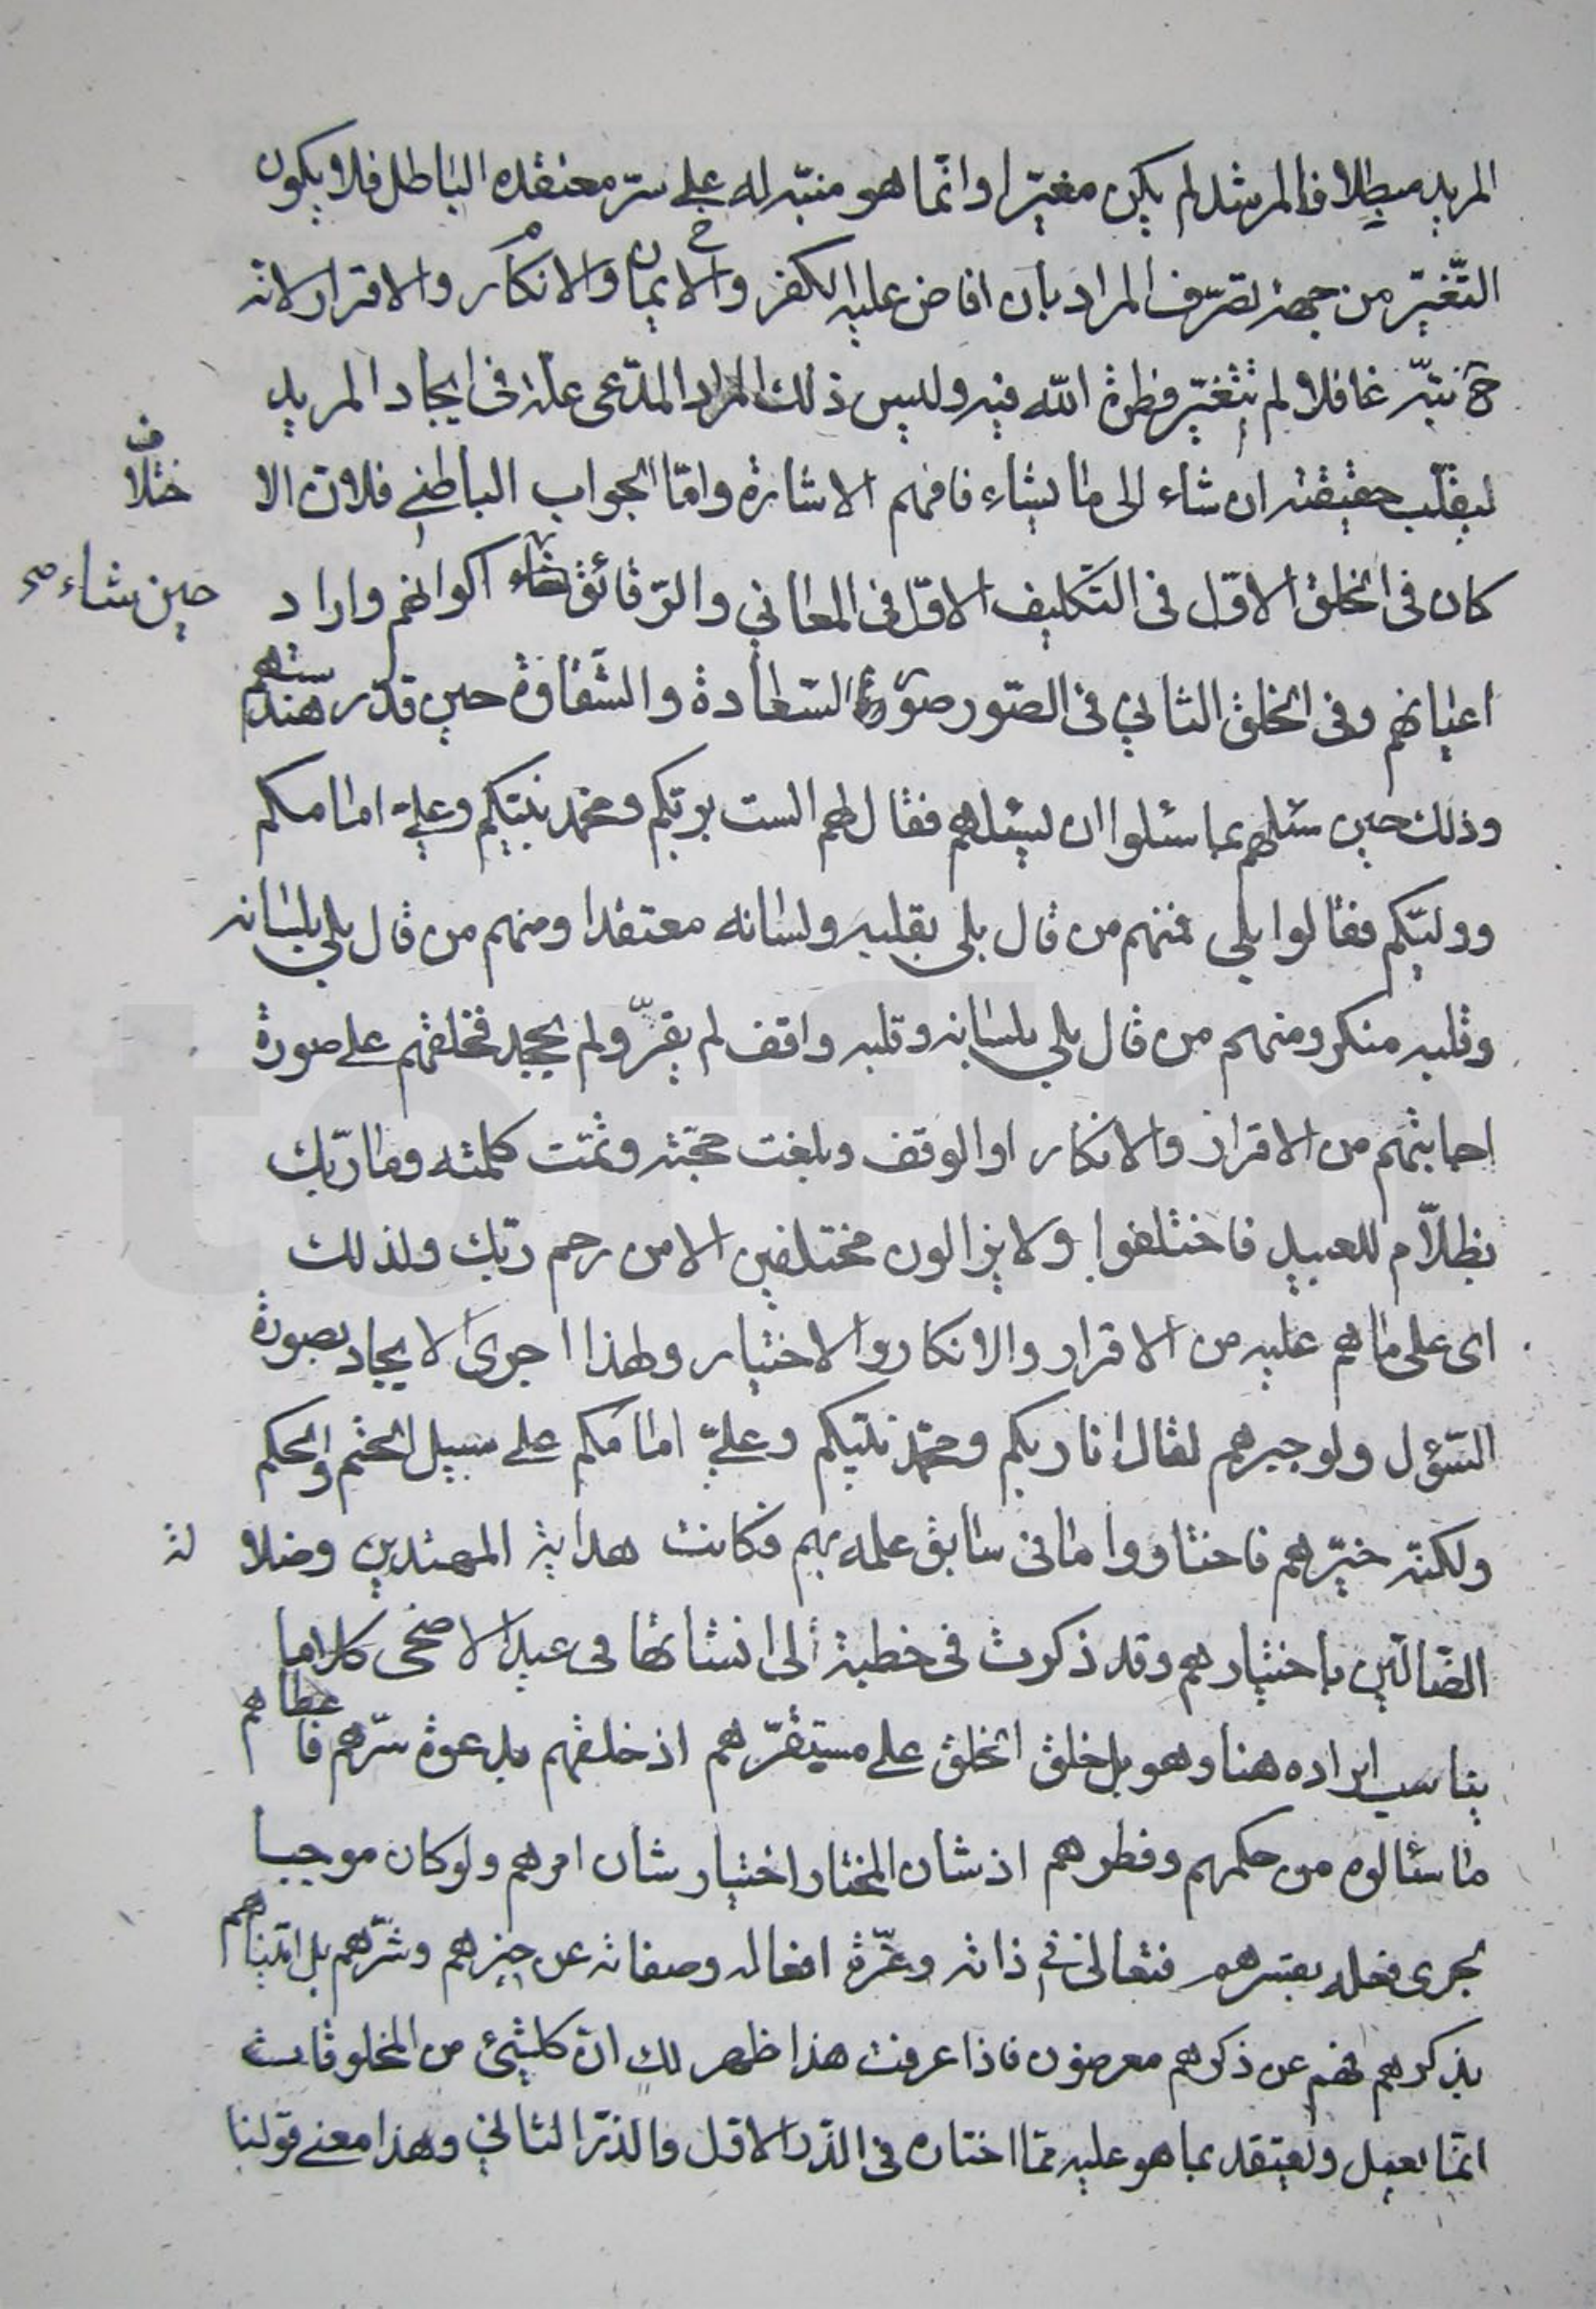 المريد مبطلا فالمرشد لم يكن مغيّرا وانّما هو منبّه له على سرّ معتقده الباطل فلا يكون
التّغيّر من جهة تصرّف المراد بان افاض عليه الكفر والايمان والانكار والاقرار لانه
ح نبّه غافلا ولم تتغيّر فطرة الله فيه وليس ذلك المراد المدّعى علة فى ايجاد المريد
ليقلّب حقيقته ان شاء الى ما يشاء فافهم الاشارة وامّا الجواب الباطني فلانّ الا
ختلاف
كان فى الخلق الاوّل فى التكليف الاوّل فى المعاني والرّقائق اكوانهم واراد
حين شاء صح
اعيانهم وفى الخلق الثاني فى الصّور صورة السّعادة والشّقاوة حين قدّر هندستهم
وذلك حين سئلهم بما سئلوا ان يسئلهم فقال لهم الست بربّكم ومحمد نبيّكم وعليّ امامكم
ووليّكم فقالوا بلى فمنهم من قال بلى بقلبه ولسانه معتقدا ومنهم من قال بلى بلسانه
وقلبه منكر ومنهم من قال بلى بلسانه وقلبه واقف لم يقرّ ولم يجحد فخلقهم على صورة
اجابتهم من الاقرار والانكار او الوقف وبلغت حجّته وتمّت كلمته وما ربّك
بظلّام للعبيد فاختلفوا ولا يزالون مختلفين الا من رحم ربّك ولذلك
اى على ما هم عليه من الاقرار والانكار والاختيار ولهذا اجرى الايجاد بصورة
السّؤل ولو جبرهم لقال انا ربكم ومحمّد نبيّكم وعليّ امامكم على سبيل الحتم والحكم
ولكنّه خيّرهم فاختاروا ما فى سابق علمه بهم فكانت هداية المهتدين وضلا لة
الضّالّين باختيارهم وقد ذكرت فى خطبة لى انشاتها فى عيد الاضحى كلاما
يناسب ايراده هنا وهو بل خلق الخلق على مستقرّهم اذ خلقهم بدعوة سرّهم فا عطاهم
ما سئالوه من حكمهم وفطرهم اذ شان المختار اختيار شان امرهم ولو كان موجبا
لجرى فعله بقسرهم فتعالى فى ذاته وعزّة افعاله وصفاته عن خيرهم وشرّهم بل اتيناهم
بذكرهم فهم عن ذكرهم معرضون فاذا عرفت هذا ظهر لك انّ كلشئ من المخلوقات
انّما يعمل ويعتقد بما هو عليه ممّا اختاره فى الذّر الاوّل والذرّ الثاني وهذا معنى قولنا